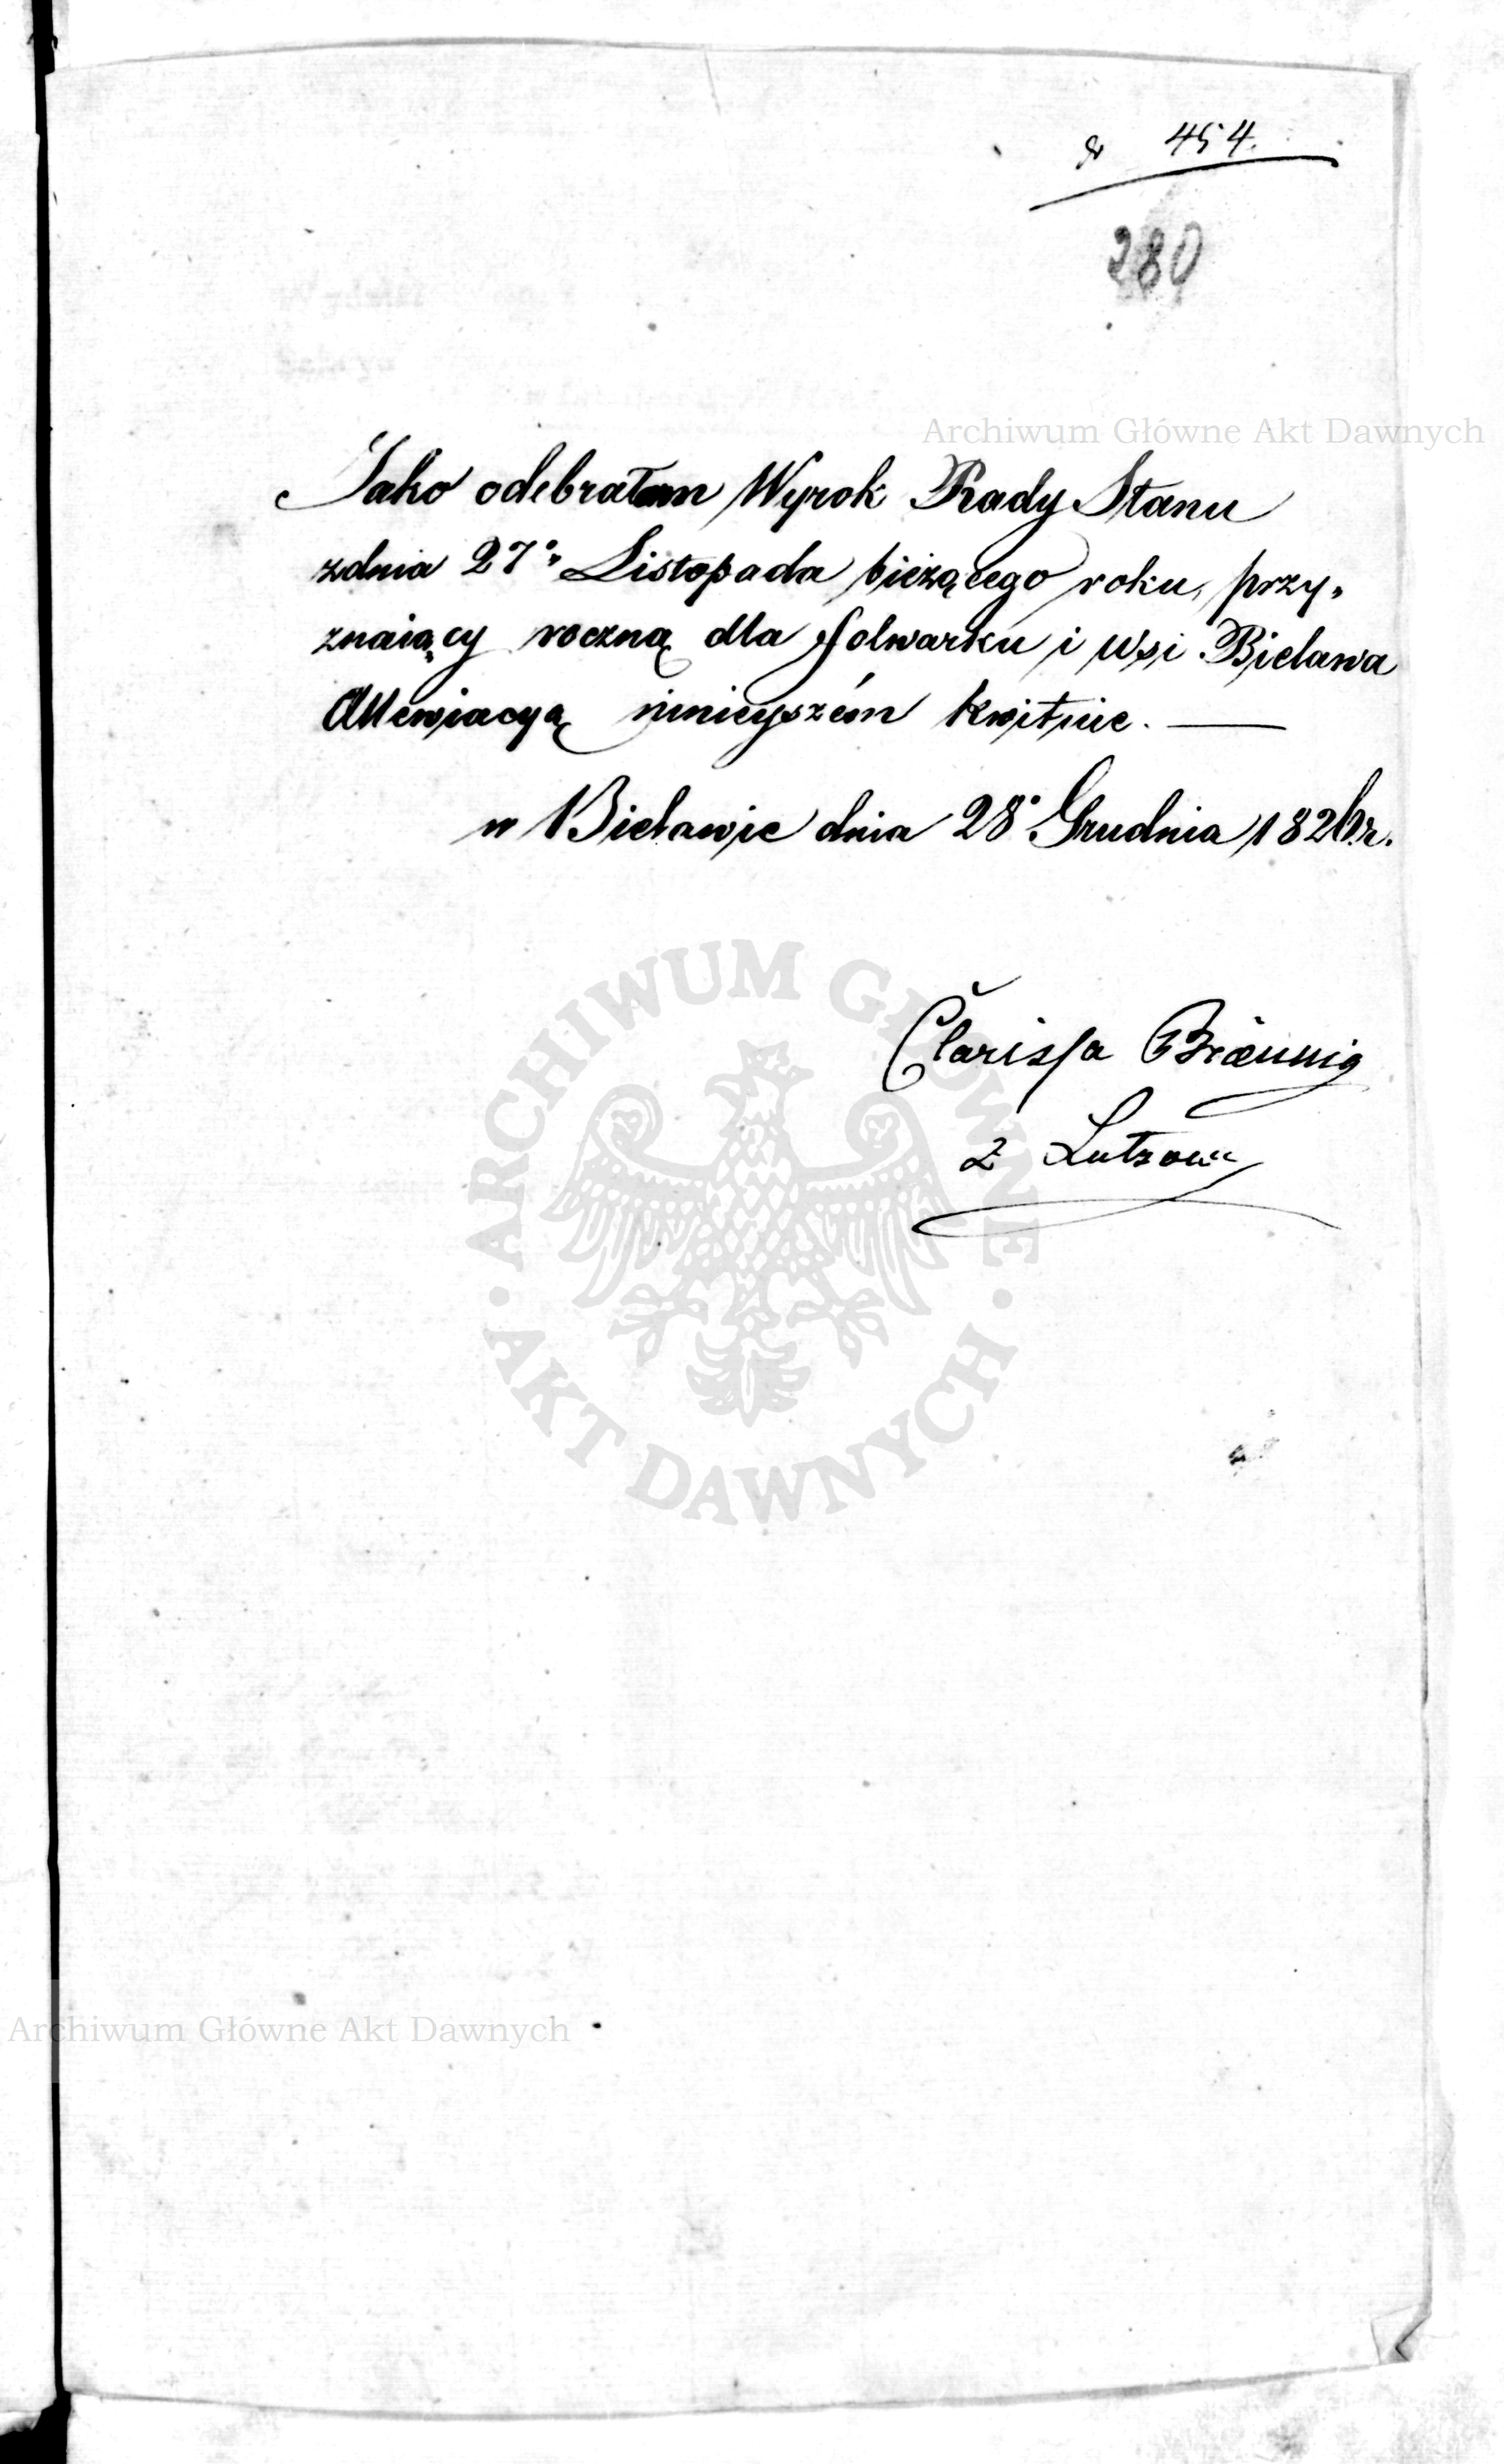 454.
280
Archiwum Główne Akt Dawnych
Jako odebrałam Wyrok Rady Stanu
zdnia 27° Listopada bieżącego roku, przy„
znaiący roczną dla folwarku i wsi Bielawa
Allewiacyą ninieyszém kwituie. —
w Bielawie dnia 28° Grudnia 1826.r.
Clarissa Braennig
z Lutzow
ARCHIWUM GŁÓWNE · AKT DAWNYCH ·
Archiwum Główne Akt Dawnych